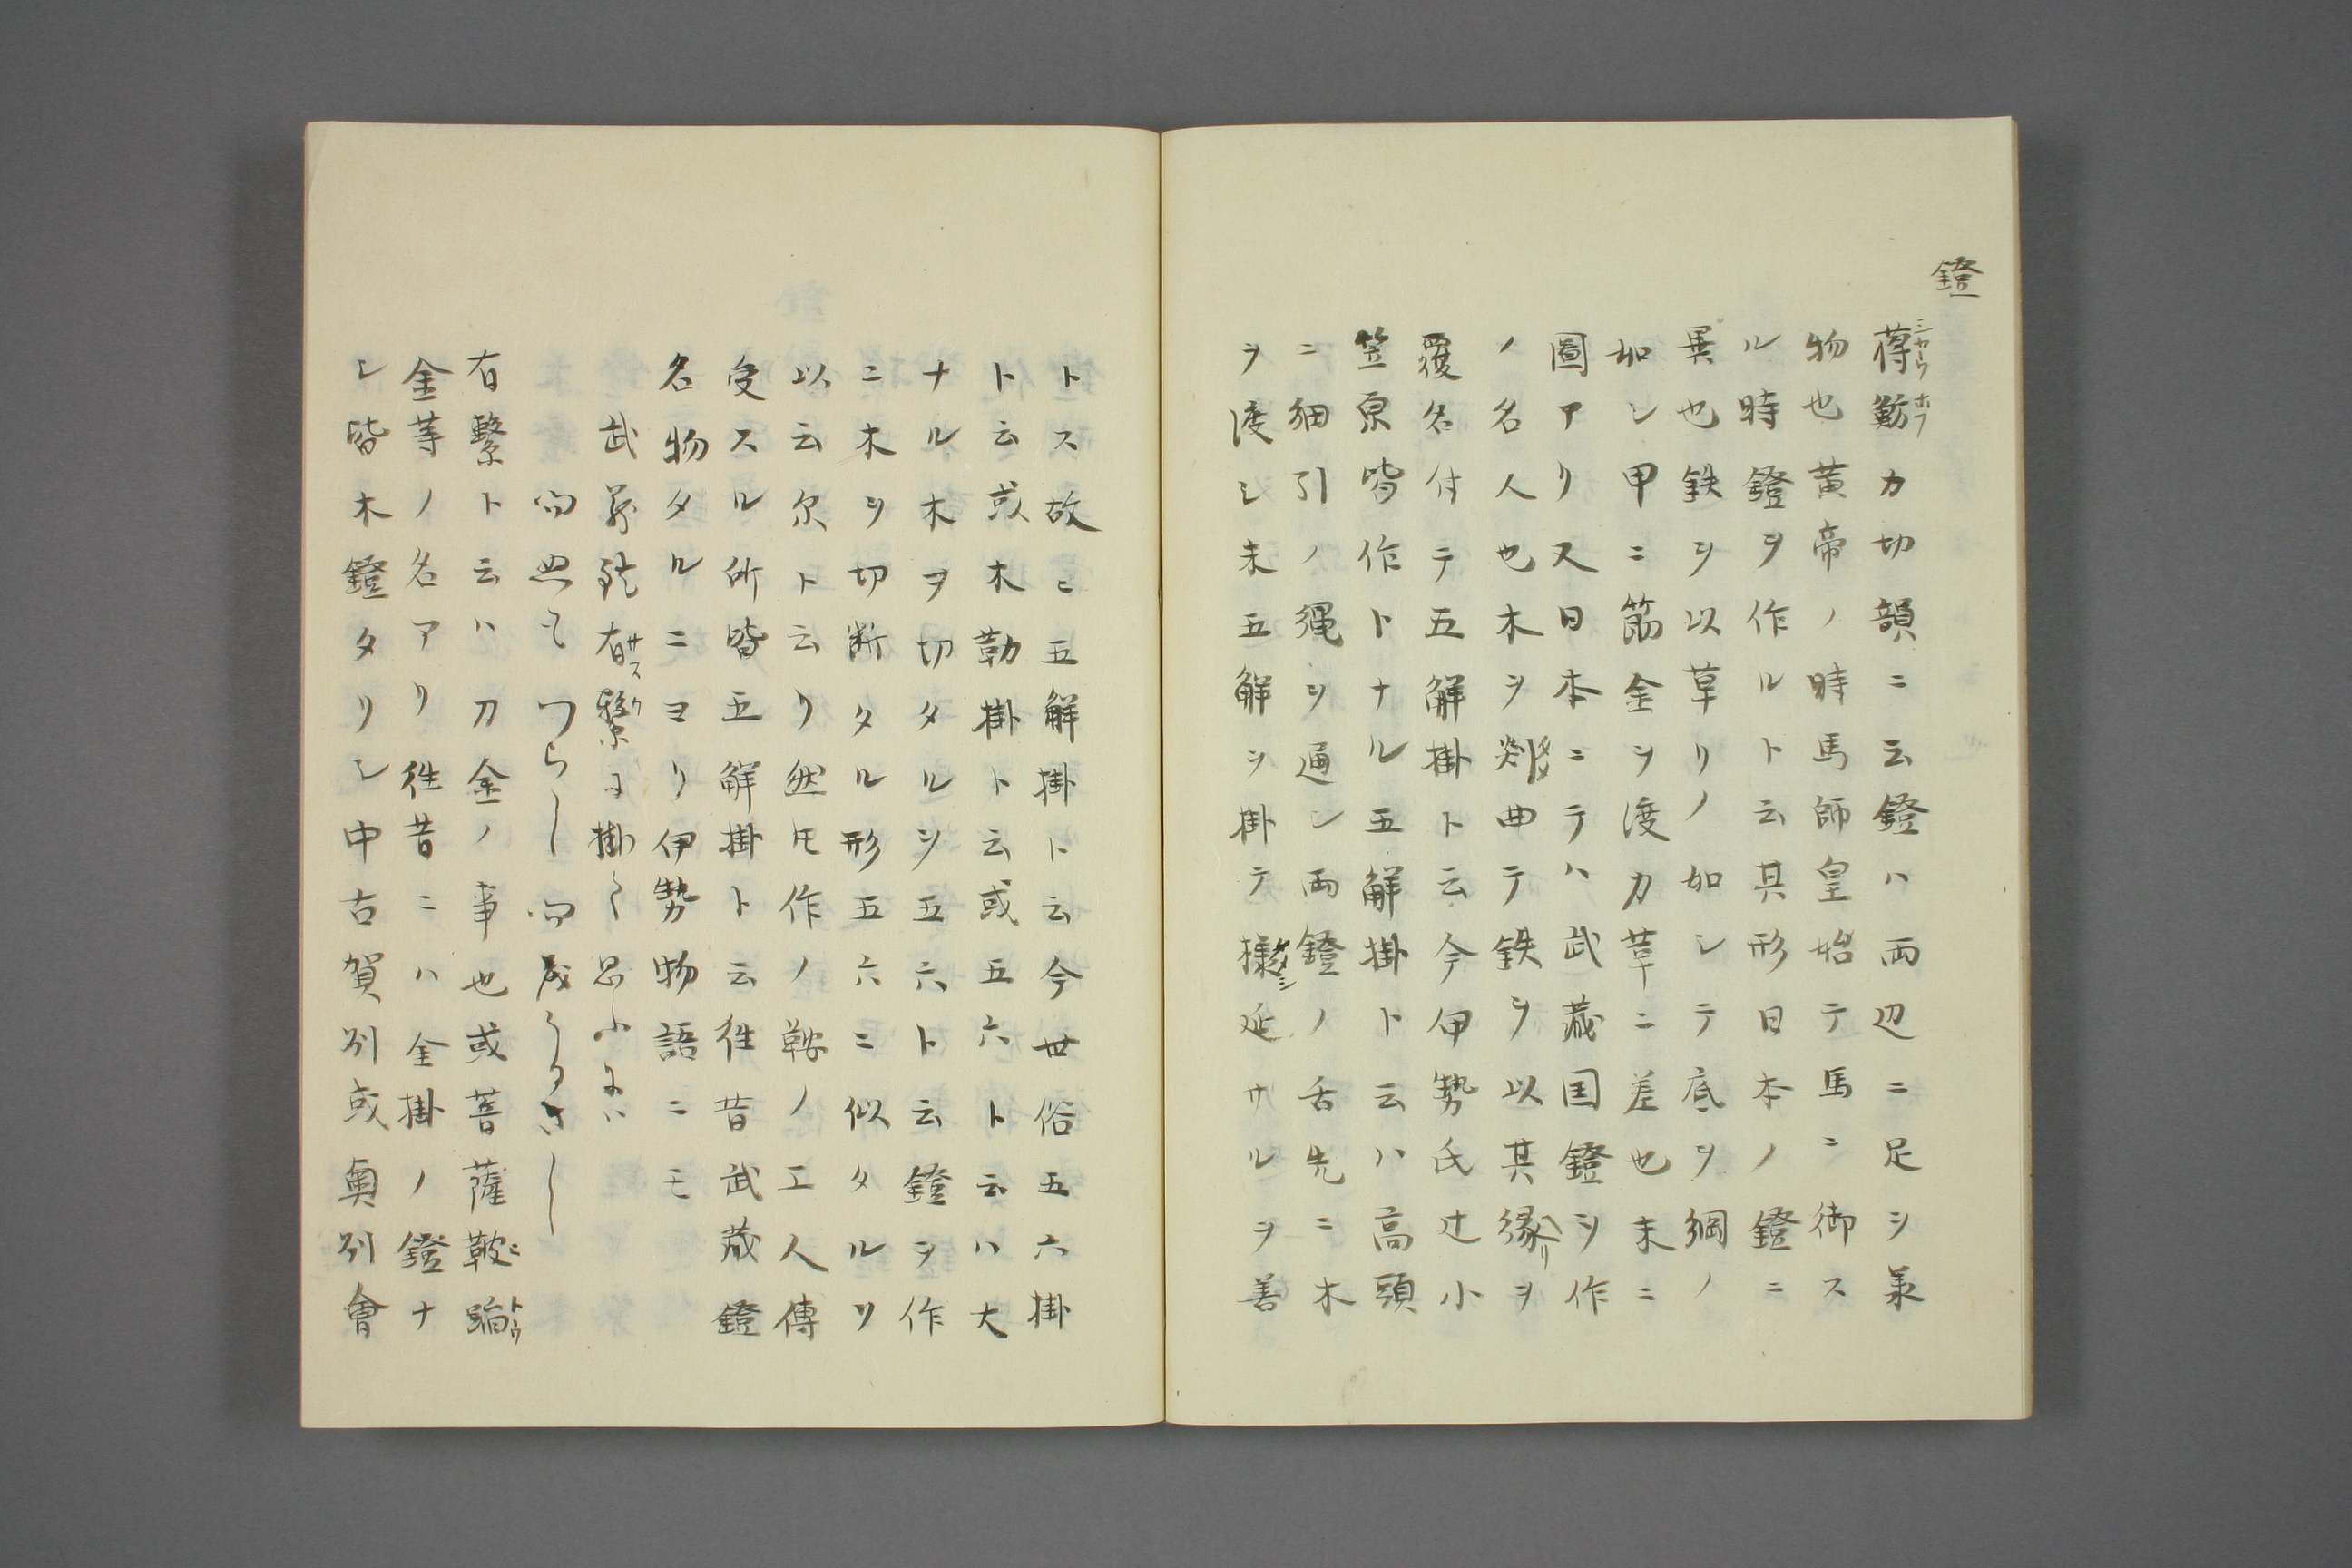 鐙
蒋魴カ切韻ニ云鐙ハ両辺ニ足ヲ義
物也黄帝ノ時馬師皇始テ馬ニ御ス
ル時鐙ヲ作ルト云其形日本ノ鐙ニ
異也鉄ヲ以草リノ如シテ底ヲ綱ノ
如シ甲ニ筋金ヲ渡力草ニ差也末ニ
圖アリ又日本ニテハ武蔵国鐙ヲ作
ノ名人也木ヲ剡曲テ鉄ヲ以其縁ヲ
覆名付テ五解掛ト云今伊勢氏辻小
笠原皆作トナル五解掛ト云ハ高頭
ニ細引ノ縄ヲ通シ両鐙ノ舌先ニ木
ヲ渡シ末五解ヲ掛テ様延サルヲ善
トス故ニ五解掛ト云今世俗五六掛
ト云或木勒掛ト云或五六ト云ハ大
ナル木ヲ切タルヲ五六ト云鐙ヲ作
ニ木ヲ切断タル形五六ニ似タルヲ
以云尓ト云リ然モ作ノ鞍ノ工人傳
受スル所皆五解掛ト云往昔武蔵鐙
名物タルニヨリ伊勢物語ニモ
武蔵鐙有繋に掛て思ふには
問ぬもつらし問もうるさし
有繋ト云ハ刀金ノ事也或菩薩鞁鞱
金等ノ名アリ往昔ニハ金掛ノ鐙ナ
シ皆木鐙タリシ中古賀刕或奥刕會